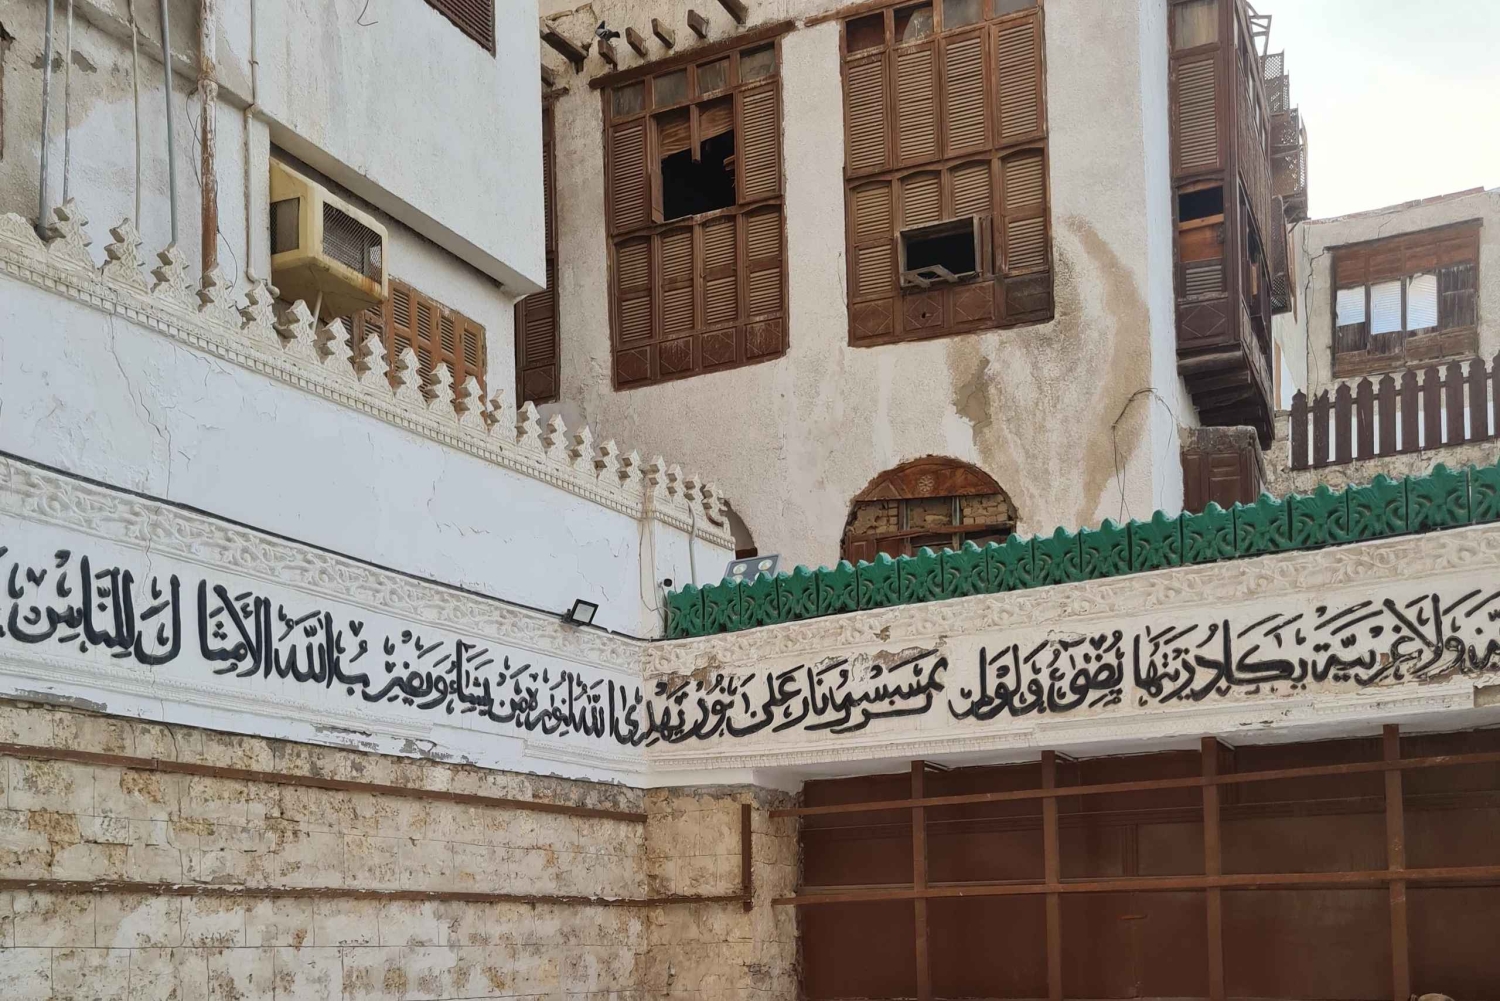 وَلَا غَرْبِيَّةٍ يَكَادُ زَيْتُهَا يُضِيءُ وَلَوْ لَمْ تَمْسَسْهُ نَارٌ نُورٌ عَلَىٰ نُورٍ يَهْدِي اللَّهُ لِنُورِهِ مَن يَشَاءُ وَيَضْرِبُ اللَّهُ الْأَمْثَالَ لِلنَّاسِ